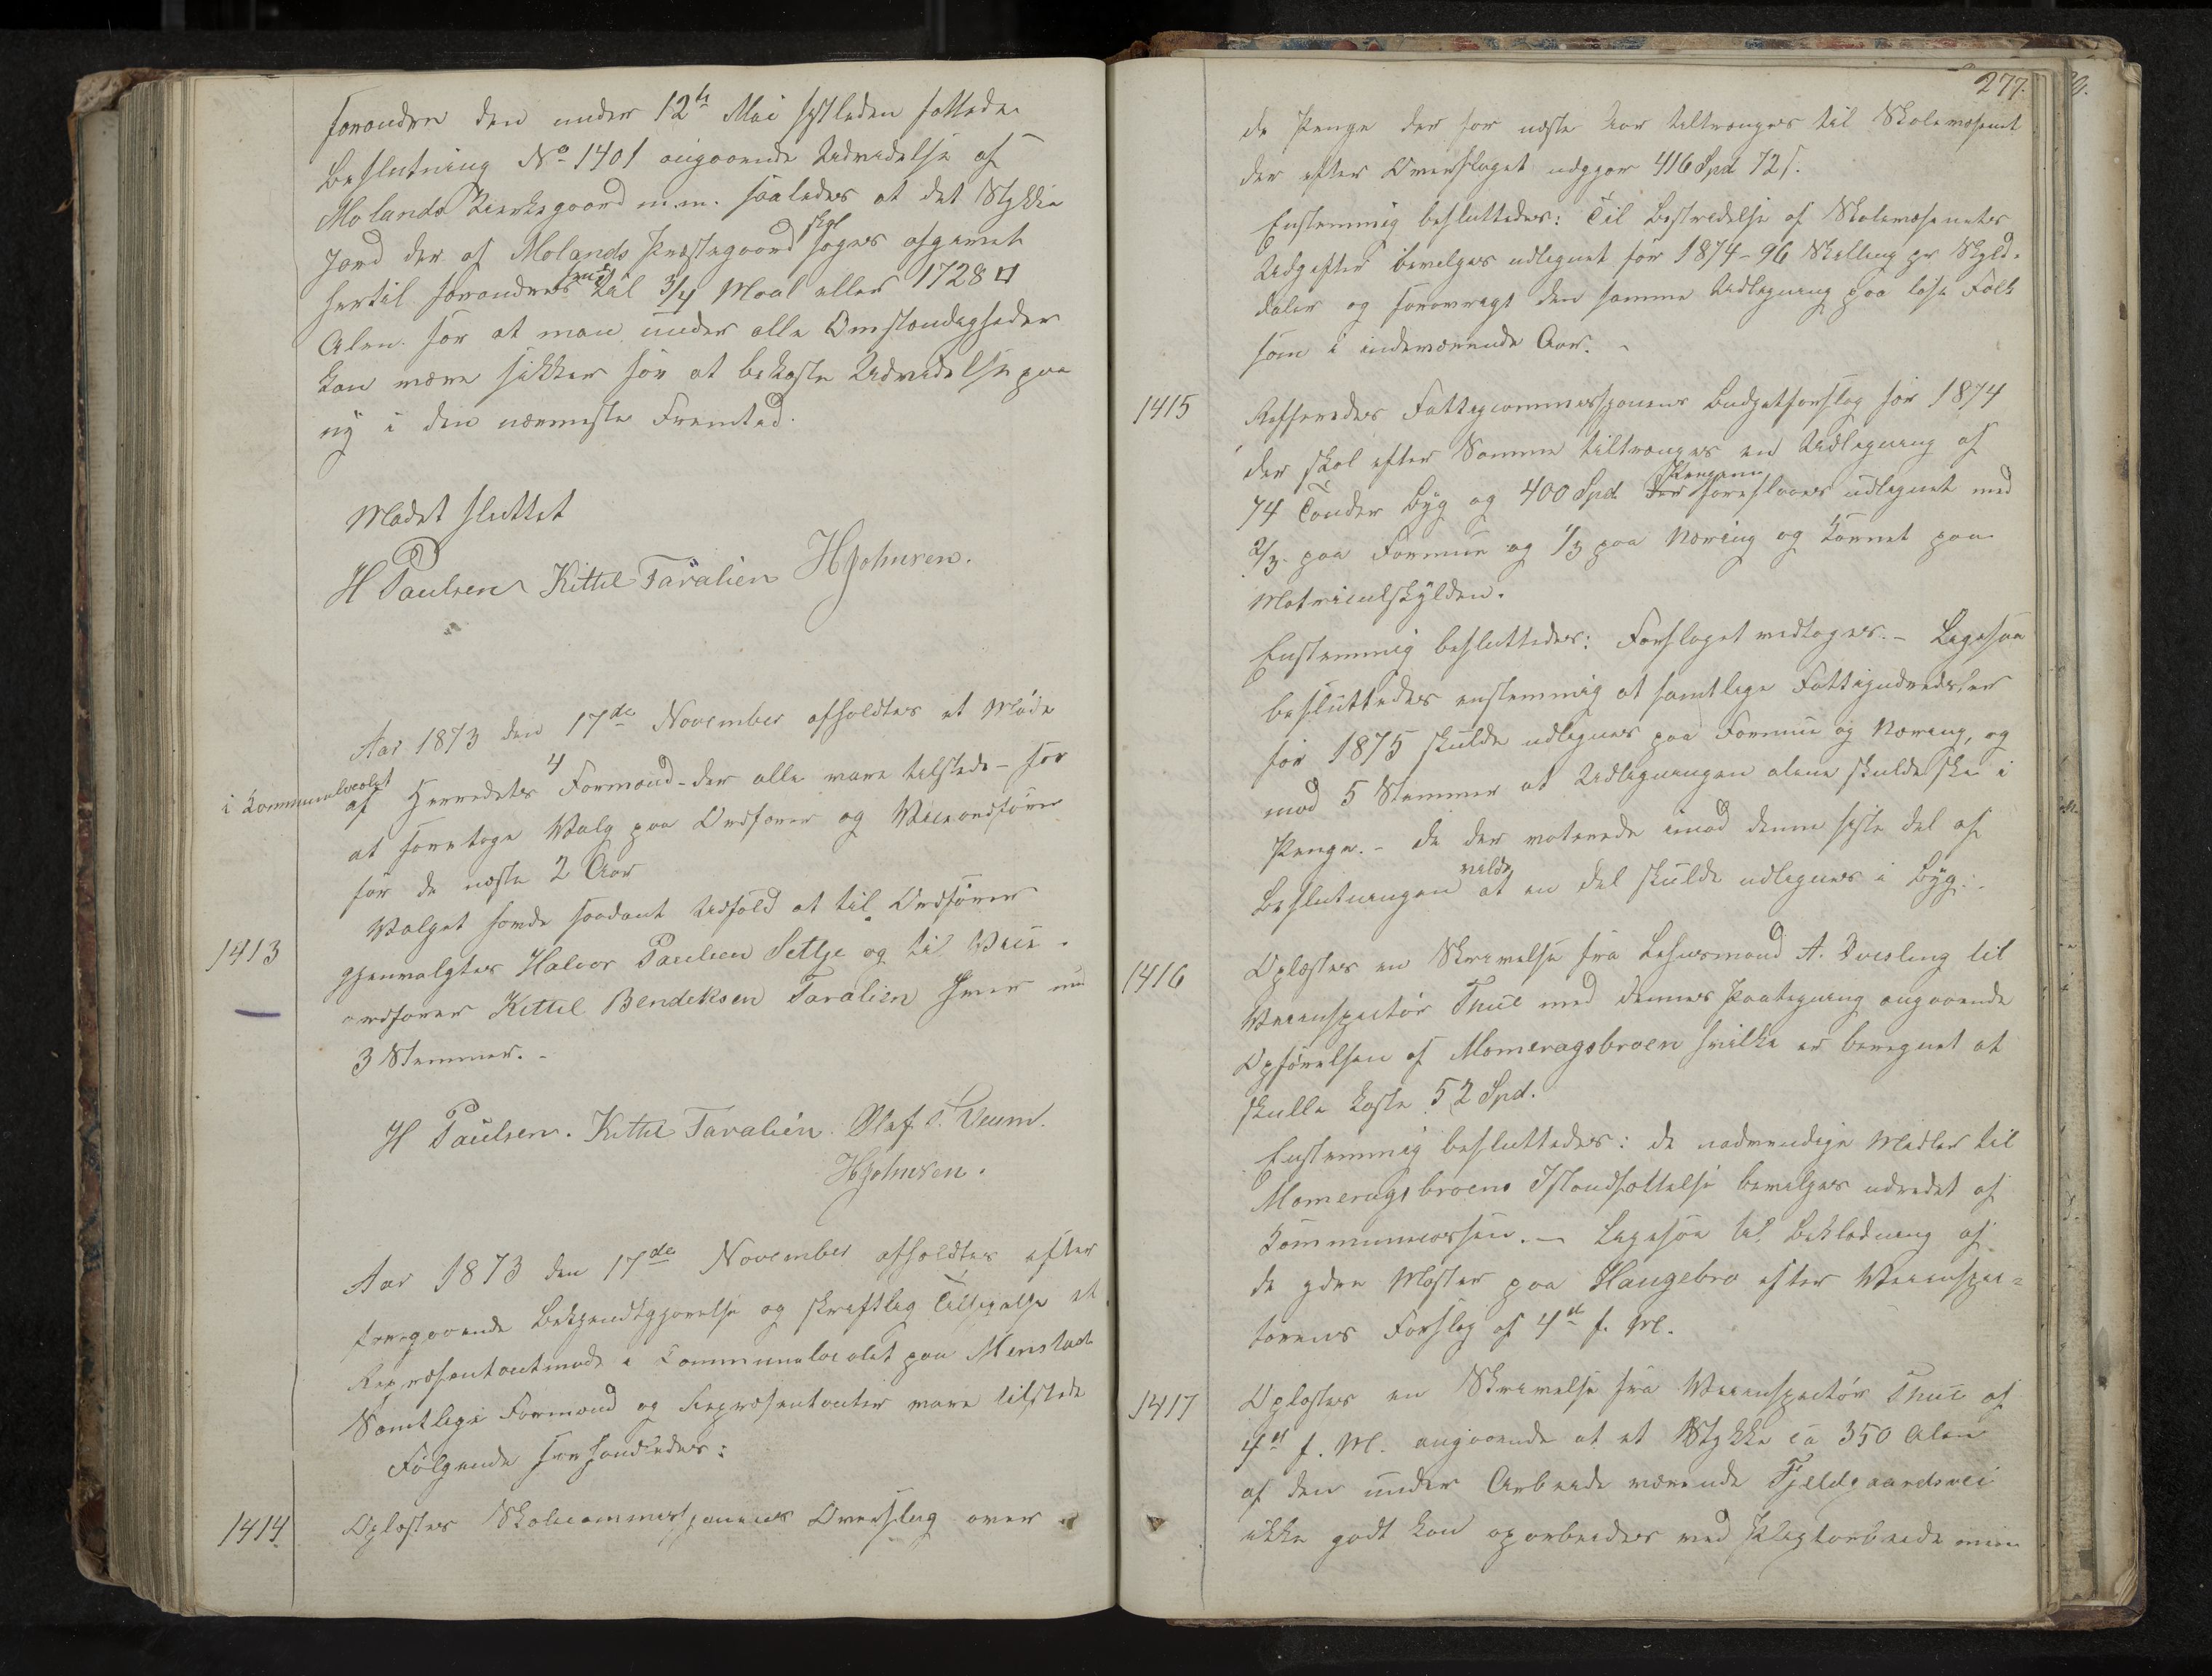 forandre den under 12te Mai sistleden fattede
Beslutning No 1401 angaaende Udvidelse af
Molands Kirkegaard m.m. saaledes at det Stykke
Jord der af Molands Præstegaard skal søges afgivet
hertil forandres til 3/4 Maal eller 1728 □
Alen. for at man under alle Omstændigheder
kan være sikker for at bekoste Udvidelse paa
ny i den nærmeste Fremtid.
Mødet sluttet
H Paulsen Kittil Taralien HJohnsen.
Aar 1873 den 17de November afholdtes et Møde
i Kommunelocalet af Herredets 4 Formænd - der alle vare tilstede - for
at foretage Valg paa Ordfører og Viceordfører
for de næste 2 Aar
1413
Valget havde saadant Udfald at til Ordfører
gjenvalgtes Halvor Paulsen Settje og til Vice-
ordfører Kittil Bendiksen Taralien hver med
3 Stemmer. -
H Paulsen. Kittil Taralien. Olaf Veum.
HJohnsen.
Aar 1873 den 17de November afholdtes efter
foregaaende Bekjendtgjørelse og skriftlig Tilsigelse et
Repræsentantmøde i Communelocalet paa Menstad
Samtlige Formænd og Repræsentanter vare tilstede
Følgende forhandledes:
1414 Oplæstes Skolecommissionens Overslag over
277.
de Penge der for næste Aar tiltrænges til Skolevæsenet
der efter Overslaget udgjør 416 Spd 72 s.
Enstemmig besluttedes: Til Bestridelse af Skolevæsenets
Udgifter bevilges udlignet for 1874 - 96 Skilling pr Skyld-
daler og forøvrigt den samme Udligning paa løse Folk
som i indeværende Aar. -
1415 Refereredes Fattigcommissionens Budgetforslag for 1874
der skal efter Samme tiltrænges en Udligning af
74 Tønder Byg og 400 Spd Pengene foreslaaes udlignet med
2/3 paa Formue og 1/3 paa Næring og Kornet paa
Matriculskylden.
Enstemmig besluttedes: Forslaget vedtages. - Ligesaa
besluttedes enstemmig at samtlige Fattigudredsler
for 1875 skulde udlignes paa Formue og Næring, og
mod 5 Stemmer at Udligningen alene skulde ske i
Penge. - De der voterede imod denne siste del af
Beslutningen vilde at en del skulde udlignes i Byg.
1416 Oplæstes en Skrivelse fra Lehnsmand A. Qvisling til
Veiinspectør Thue med dennes Paategning angaaende
Opførelsen af Momeragsbroen hvilke er beregnet at
skulle koste 52 Spd.
Enstemmig besluttedes: de nødvendige Midler til
Momeragsbroens Istandsættelse bevilges udredet af
Kommunecassen. - Ligesaa til Beklædning af
de ydre Master paa Haugebro efter Veiinspec-
tørens Forslag af 4de f. M.
1417 Oplæstes en Skrivelse fra Veiinspectør Thue af
4de f. M. angaaende at et Stykke ca 350 Alen
af den under Arbeide værende Fjeldgaardsvei
ikke godt kan oparbeides ved Pligtarbeide men